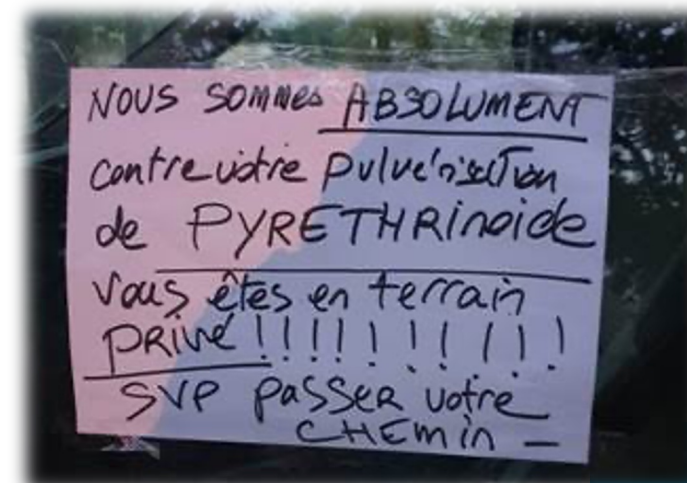 NOUS SOMMES ABSOLUMENT
contre votre pulvérisation
de PYRETHRinoide
Vous êtes en terrain
privé !!!!!!!!!!
SVP PASSER votre
CHEMin –